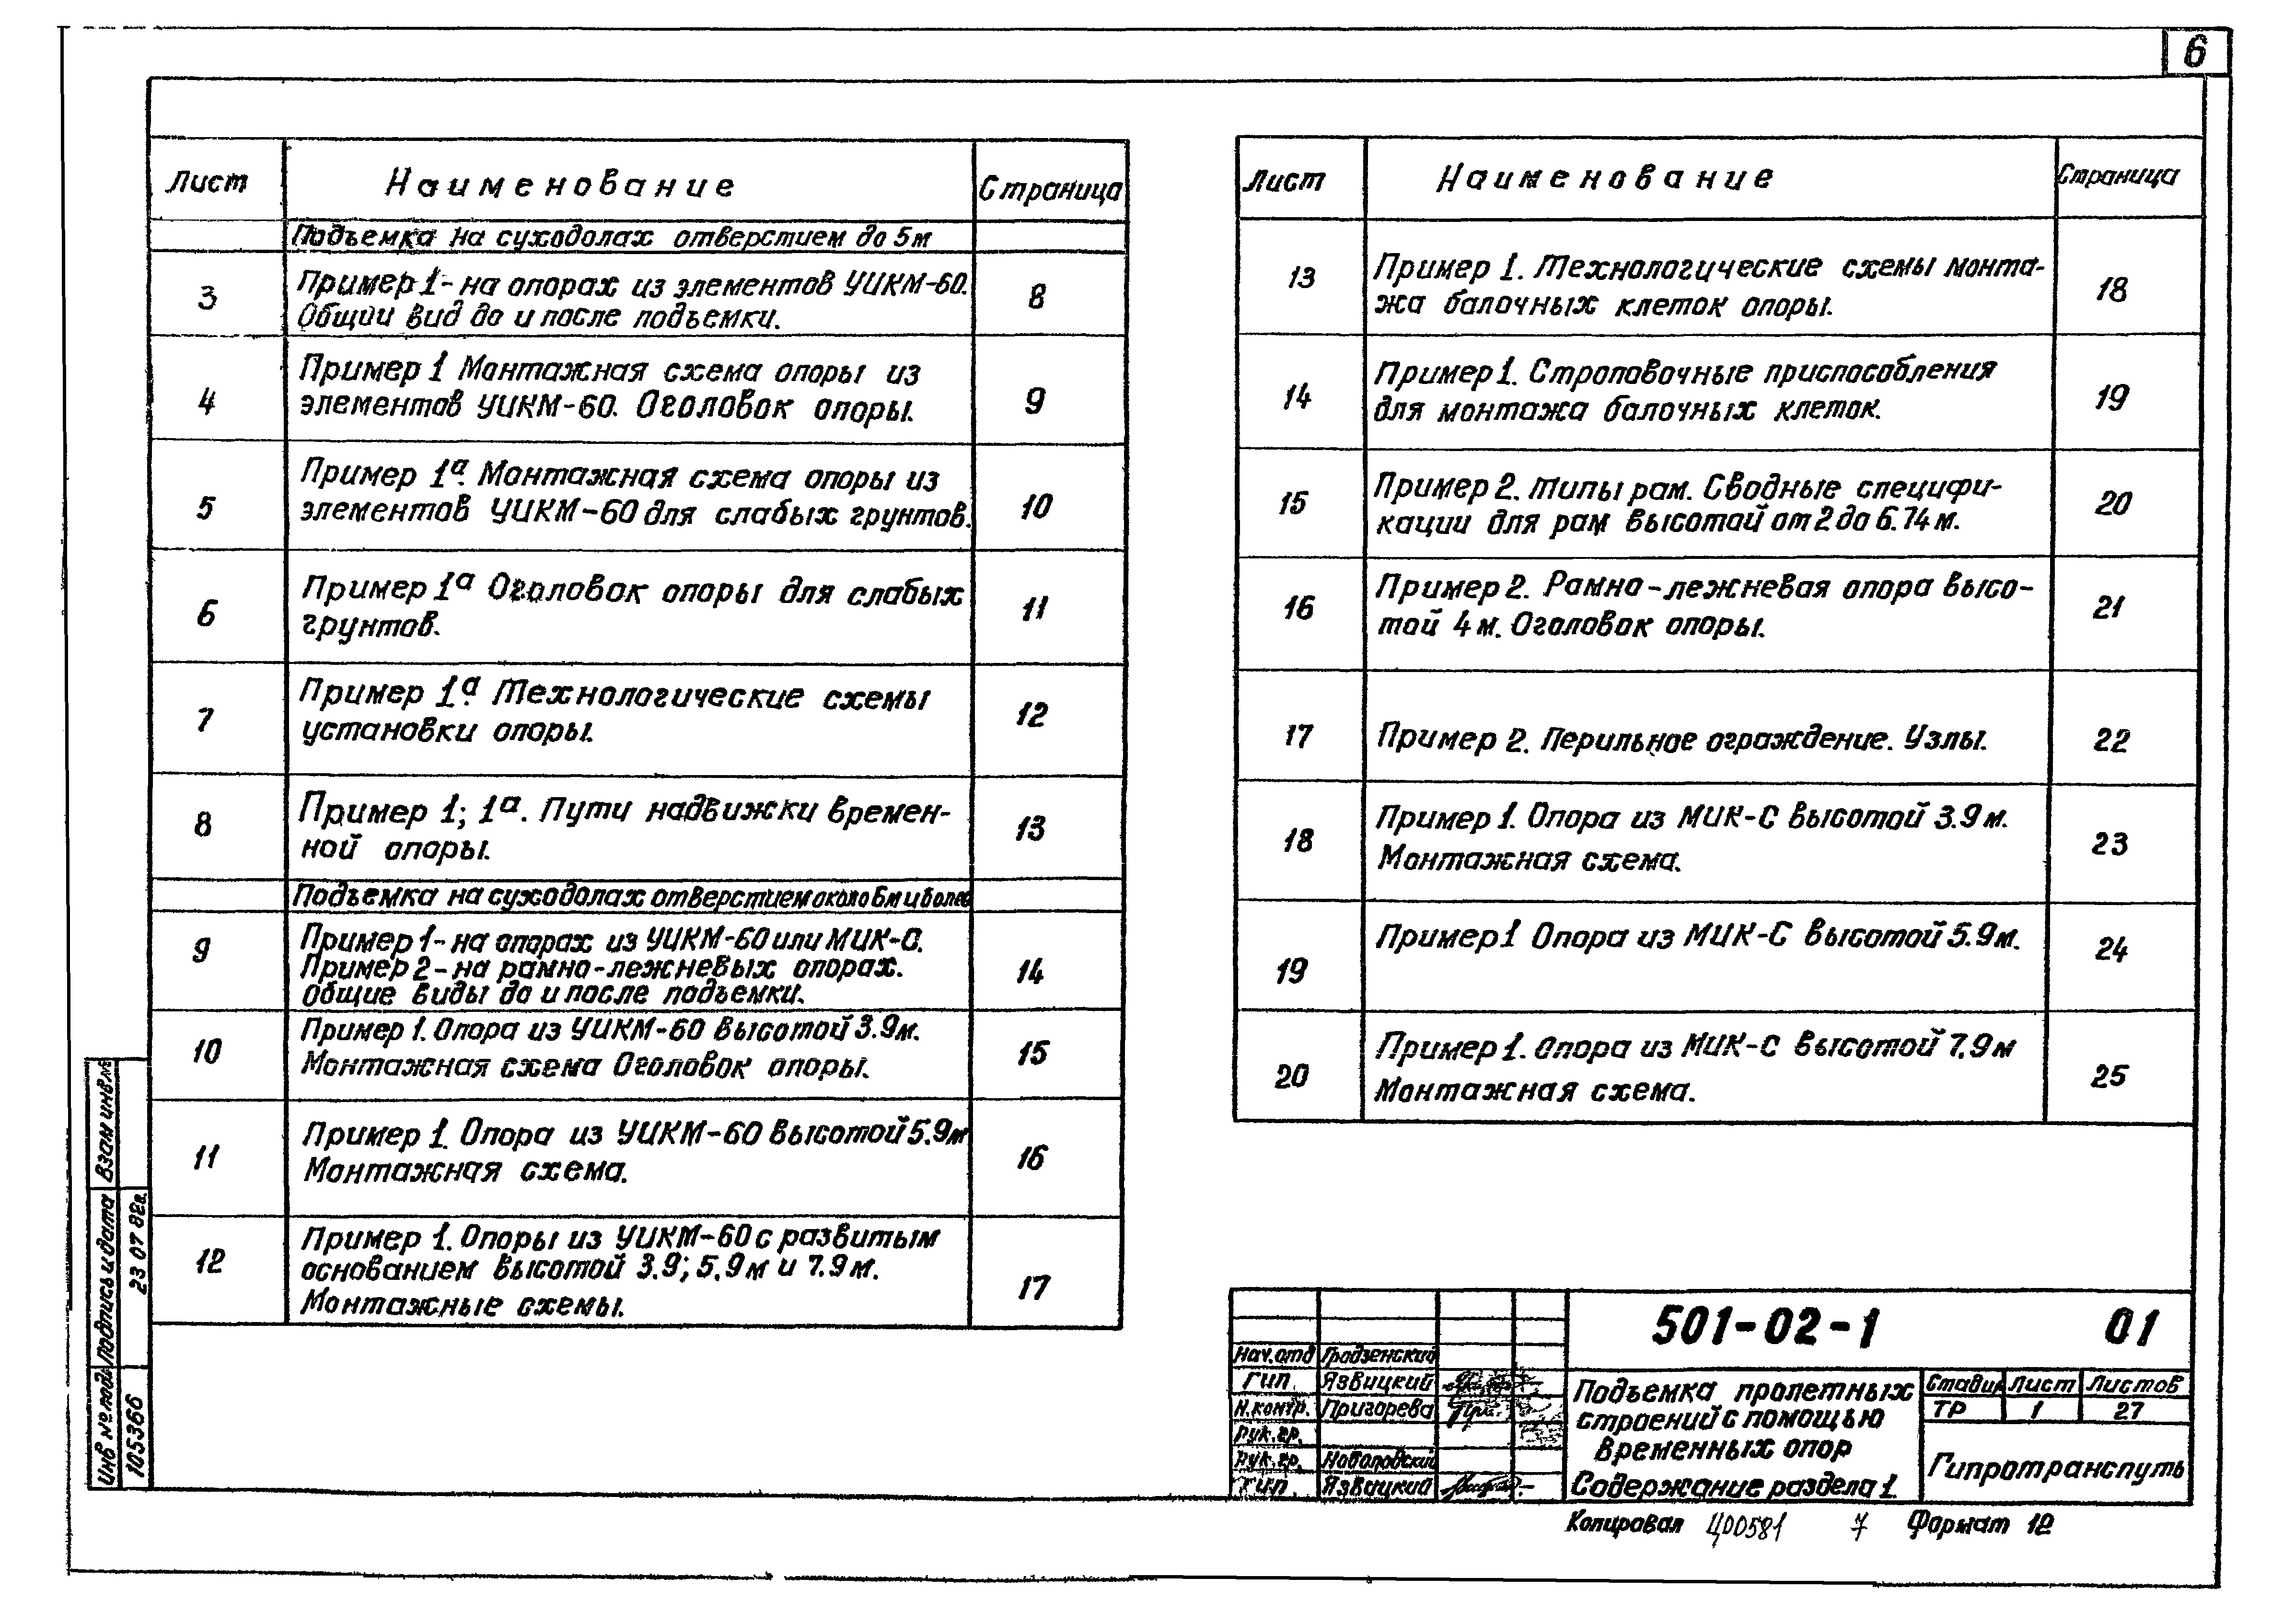 6
Лист Наименование Страница
Подъемка на суходолах отверстием до 5м
3 Пример 1- на опорах из элементов УИКМ-60. 8
Общий вид до и после подъемки.
4 Пример 1 Монтажная схема опоры из 9
элементов УИКМ-60. Оголовок опоры.
5 Пример 1а. Монтажная схема опоры из 10
элементов УИКМ-60 для слабых грунтов.
6 Пример 1а Оголовок опоры для слабых 11
грунтов.
7 Пример 1а. Технологические схемы 12
установки опоры.
8 Пример 1; 1а. Пути надвижки времен- 13
ной опоры.
Подъемка на суходолах отверстием около 6м и более
9 Пример 1- на опорах из УИКМ-60 или МИК-С. 14
Пример 2- на рамно-лежневых опорах.
Общие виды до и после подъемки.
10 Пример 1. Опора из УИКМ-60 высотой 3.9м. 15
Монтажная схема Оголовок опоры.
11 Пример 1. Опора из УИКМ-60 высотой 5.9м 16
Монтажная схема.
12 Пример 1. Опоры из УИКМ-60 с развитым 17
основанием высотой 3.9; 5.9м и 7.9м.
Монтажные схемы.
Лист Наименование Страница
13 Пример 1. Технологические схемы монта- 18
жа балочных клеток опоры.
14 Пример 1. Строповочные приспособления 19
для монтажа балочных клеток.
15 Пример 2. Типы рам. Сводные специфи- 20
кации для рам высотой от 2 до 6.74м.
16 Пример 2. Рамно-лежневая опора высо- 21
той 4м. Оголовок опоры.
17 Пример 2. Перильное ограждение. Узлы. 22
18 Пример 1. Опора из МИК-С высотой 3.9м. 23
Монтажная схема.
19 Пример 1 Опора из МИК-С высотой 5.9м. 24
20 Пример 1. Опора из МИК-С высотой 7.9м 25
Монтажная схема.
501-02-1 01
Нач.отд Гродзенский
ГИП Язвицкий
Н.контр. Пригорева
Рук.гр.
Рук.гр. Новоловский
ГИП Язвицкий
Подъемка пролетных
строений с помощью
временных опор
Содержание раздела 1.
Стадия Лист Листов
ТР 1 27
Гипротранспуть
Копировал Ц00581 7 Формат 12
Инв № подл Подпись и дата Взам инв №
105366 23 07 82г.